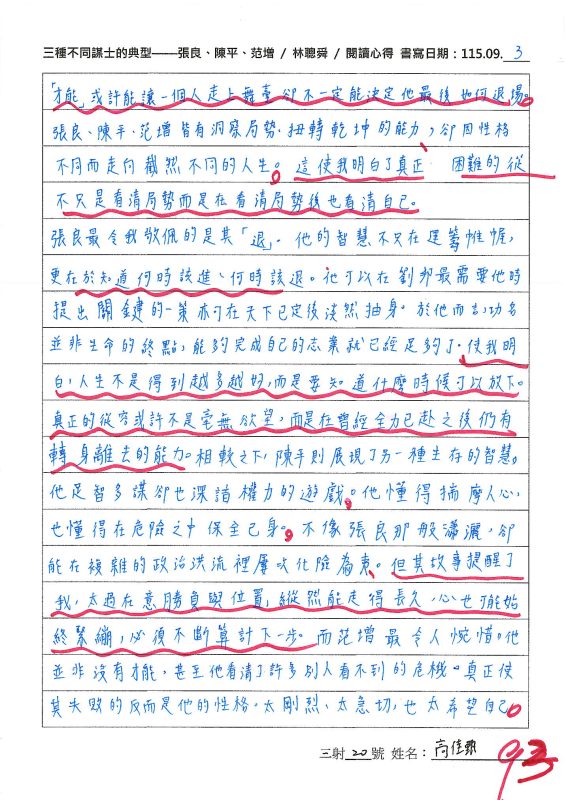 三種不同謀士的典型——張良、陳平、范增 / 林聰舜 / 閱讀心得 書寫日期：115.09. 3
「才能」或許能讓一個人走上舞臺，卻不一定能決定他最後如何退場。
張良、陳平、范增皆有洞察局勢、扭轉乾坤的能力，卻因性格
不同而走向截然不同的人生。這使我明白了真正、困難的從
不只是看清局勢而是在看清局勢後也看清自己。
張良最令我敬佩的是其「退」。他的智慧不只在運籌帷幄，
更在於知道何時該進、何時該退。他可以在劉邦最需要他時
提出關鍵的一策亦可在天下已定後淡然抽身。於他而言，功名
並非生命的終點，能夠完成自己的志業就已經足夠了。使我明
白，人生不是得到越多越好，而是要知道什麼時候可以放下。
真正的從容或許不是毫無欲望，而是在曾經全力已赴之後仍有
轉身離去的能力。相較之下，陳平則展現了另一種生存的智慧。
他足智多謀卻也深諳權力的遊戲。他懂得揣摩人心，
也懂得在危險之中保全己身。不像張良那般瀟灑，卻
能在複雜的政治洪流裡屢次化險為夷。但其故事提醒了
我，太過在意勝負與位置，縱然能走得長久，心也可能始
終緊繃，必須不斷算計下一步。而范增最令人惋惜。他
並非沒有才能，甚至他看清了許多別人看不到的危機。真正使
其失敗的反而是他的性格。太剛烈、太急切，也太希望自己。
三射 20 號 姓名：高佳
93